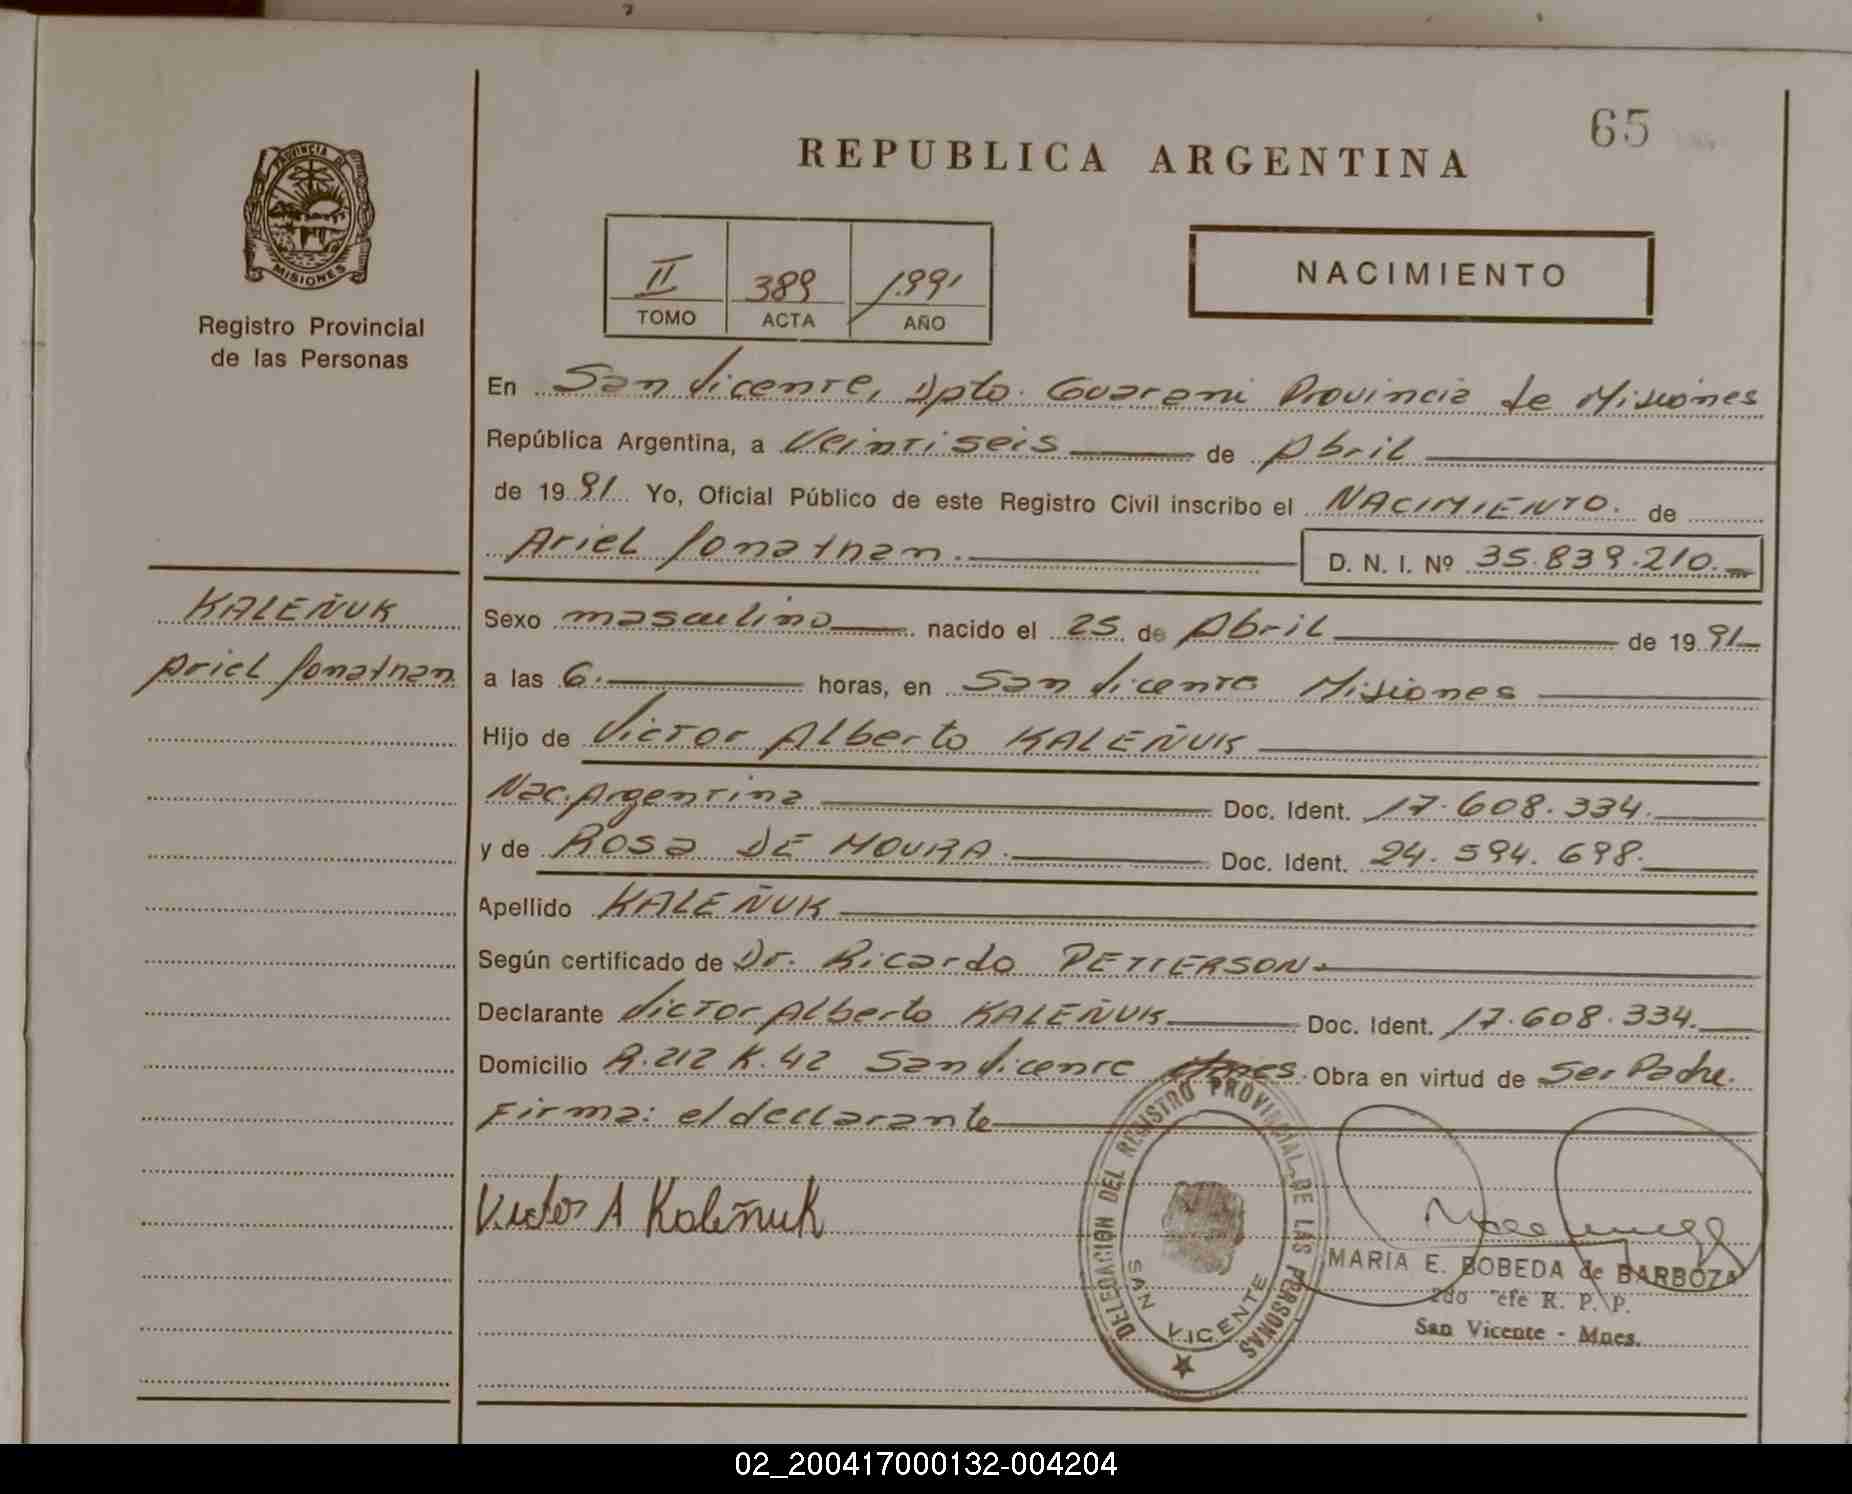 65
REPUBLICA ARGENTINA
PROVINCIA DE
MISIONES
Registro Provincial
de las Personas
II 389 1991
TOMO ACTA AÑO
NACIMIENTO
En San Vicente, Dpto. Guarani Provincia de Misiones
República Argentina, a Veintiseis de Abril
de 1991 Yo, Oficial Público de este Registro Civil inscribo el NACIMIENTO. de
Ariel Jonathan. D. N. I. Nº 35.839.210.
KALEÑUK
Ariel Jonathan
Sexo masculino nacido el 25 de Abril de 1991
a las 6. horas, en San Vicente Misiones
Hijo de Victor Alberto KALEÑUK
Nac. Argentina Doc. Ident. 17.608.334.
y de ROSA DE MOURA. Doc. Ident. 24.594.698.
Apellido KALEÑUK
Según certificado de Dr. Ricardo PETTERSON.
Declarante Victor Alberto KALEÑUK Doc. Ident. 17.608.334.
Domicilio R.212 K.42 San Vicente Mnes. Obra en virtud de Ser Padre.
Firma: el declarante
Victor A Kaleñuk
DELEGACION DEL REGISTRO PROVINCIAL DE LAS PERSONAS
SAN VICENTE
MARIA E. BOBEDA de BARBOZA
2do Jefe R. P. P.
San Vicente - Mnes.
02_200417000132-004204